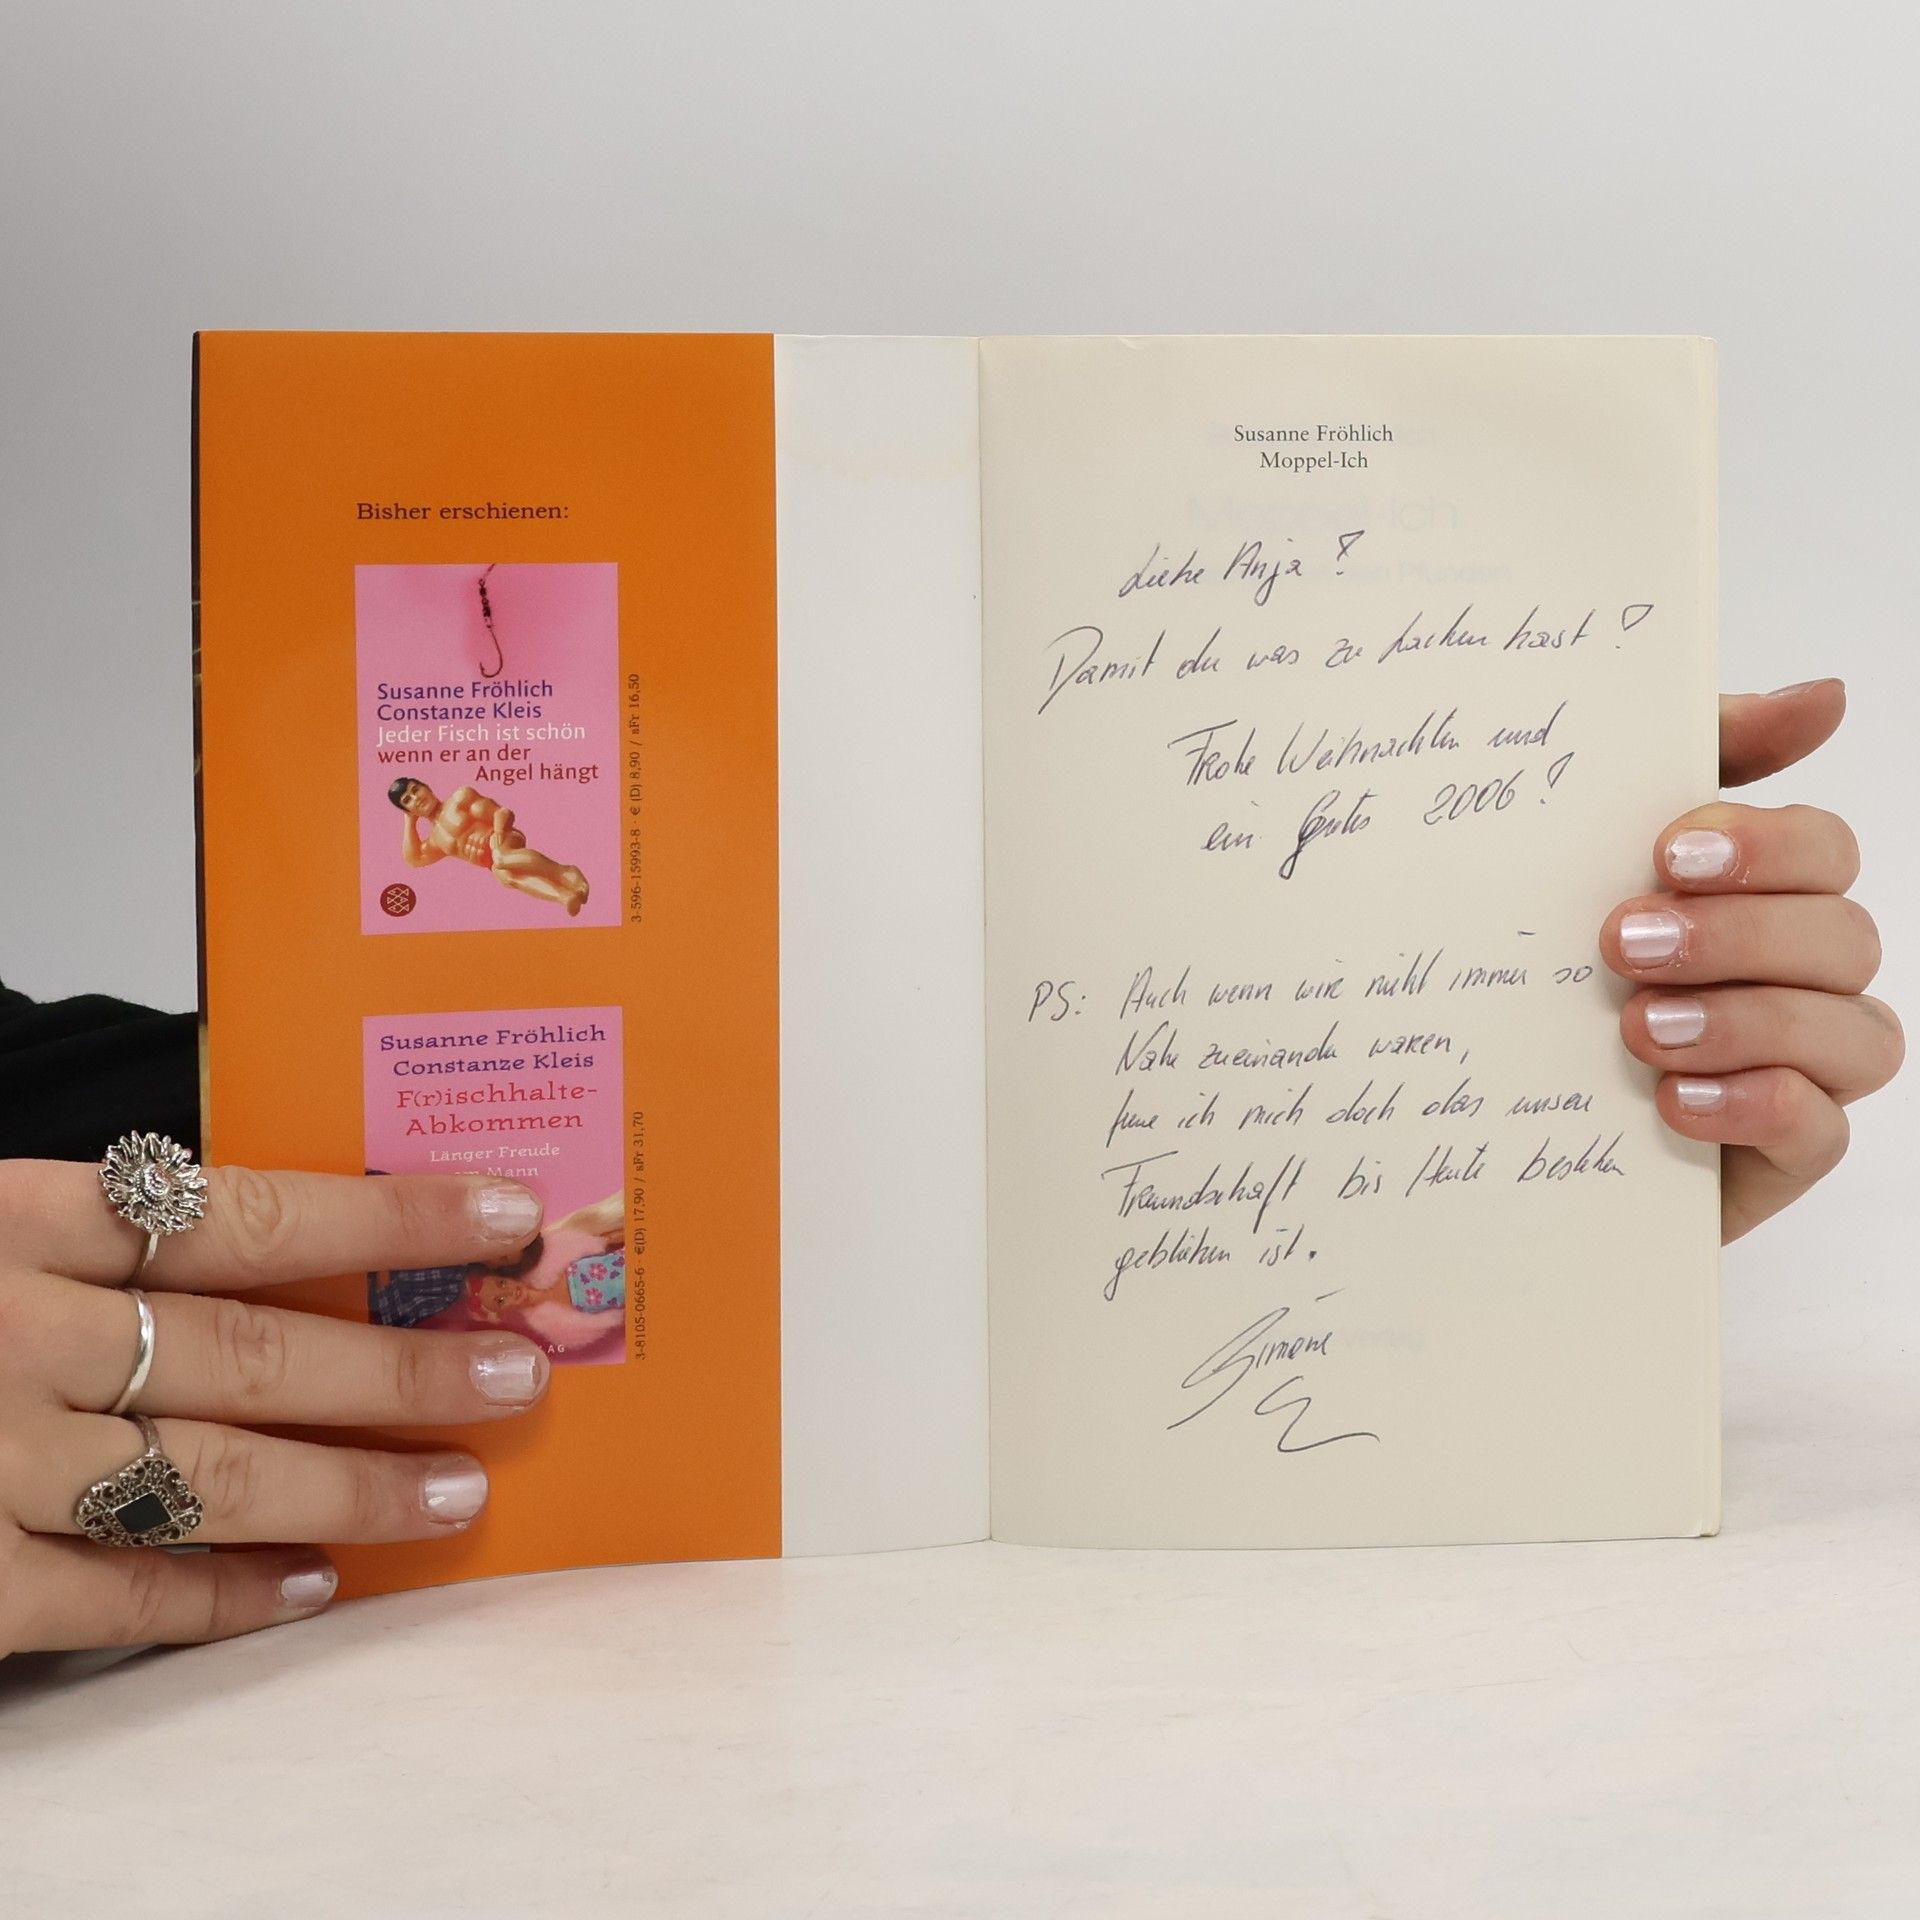 Bisher erschienen:
Susanne Fröhlich
Constanze Kleis
Jeder Fisch ist schön
wenn er an der
Angel hängt
3-596-15993-8 · € (D) 8,90 / sFr 16,50
Susanne Fröhlich
Constanze Kleis
F(r)ischhalte-
Abkommen
Länger Freude
am Mann
3-8105-0665-6 · €(D) 17,90 / sFr 31,70
Susanne Fröhlich
Moppel-Ich
Liebe Anja!
Damit du was zu Lachen hast!
Frohe Weihnachten und
ein Gutes 2006!
PS: Auch wenn wir nicht immer so
Nahe zueinander waren,
freue ich mich doch das unsere
Freundschaft bis Heute bestehen
geblieben ist.
Simone